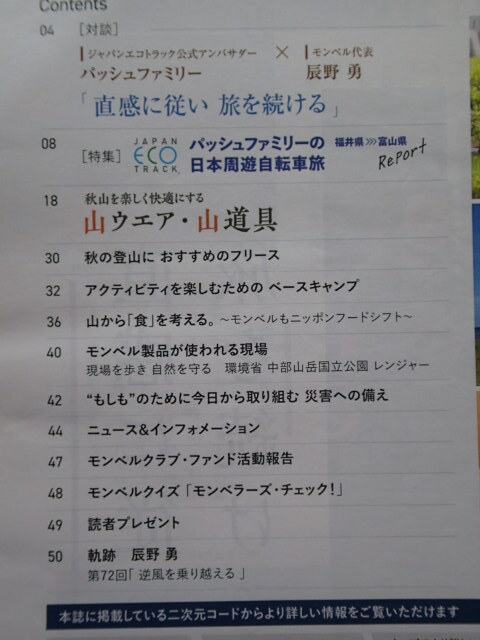 Contents
04 [対談]
ジャパンエコトラック公式アンバサダー × モンベル代表
パッシュファミリー 辰野 勇
「直感に従い 旅を続ける」
08 [特集] JAPAN ECO TRACK パッシュファミリーの 福井県>>>富山県
日本周遊自転車旅 Report
18 秋山を楽しく快適にする
山ウエア・山道具
30 秋の登山に おすすめのフリース
32 アクティビティを楽しむための ベースキャンプ
36 山から「食」を考える。~モンベルもニッポンフードシフト~
40 モンベル製品が使われる現場
現場を歩き 自然を守る 環境省 中部山岳国立公園 レンジャー
42 “もしも”のために今日から取り組む 災害への備え
44 ニュース&インフォメーション
47 モンベルクラブ・ファンド活動報告
48 モンベルクイズ「モンベラーズ・チェック!」
49 読者プレゼント
50 軌跡 辰野 勇
第72回「逆風を乗り越える」
本誌に掲載している二次元コードからより詳しい情報をご覧いただけます